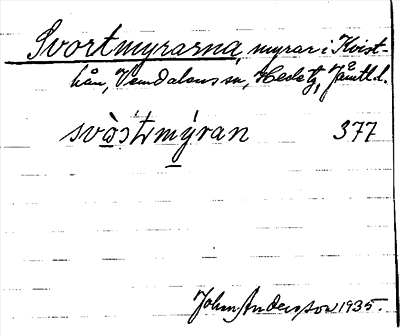 Svortmyrarna, myrar i Kvist-
hån, Vemdalens sn, Hedetg, Jämtl. l.
svòs̀tmýran 377
John Andersson 1935.